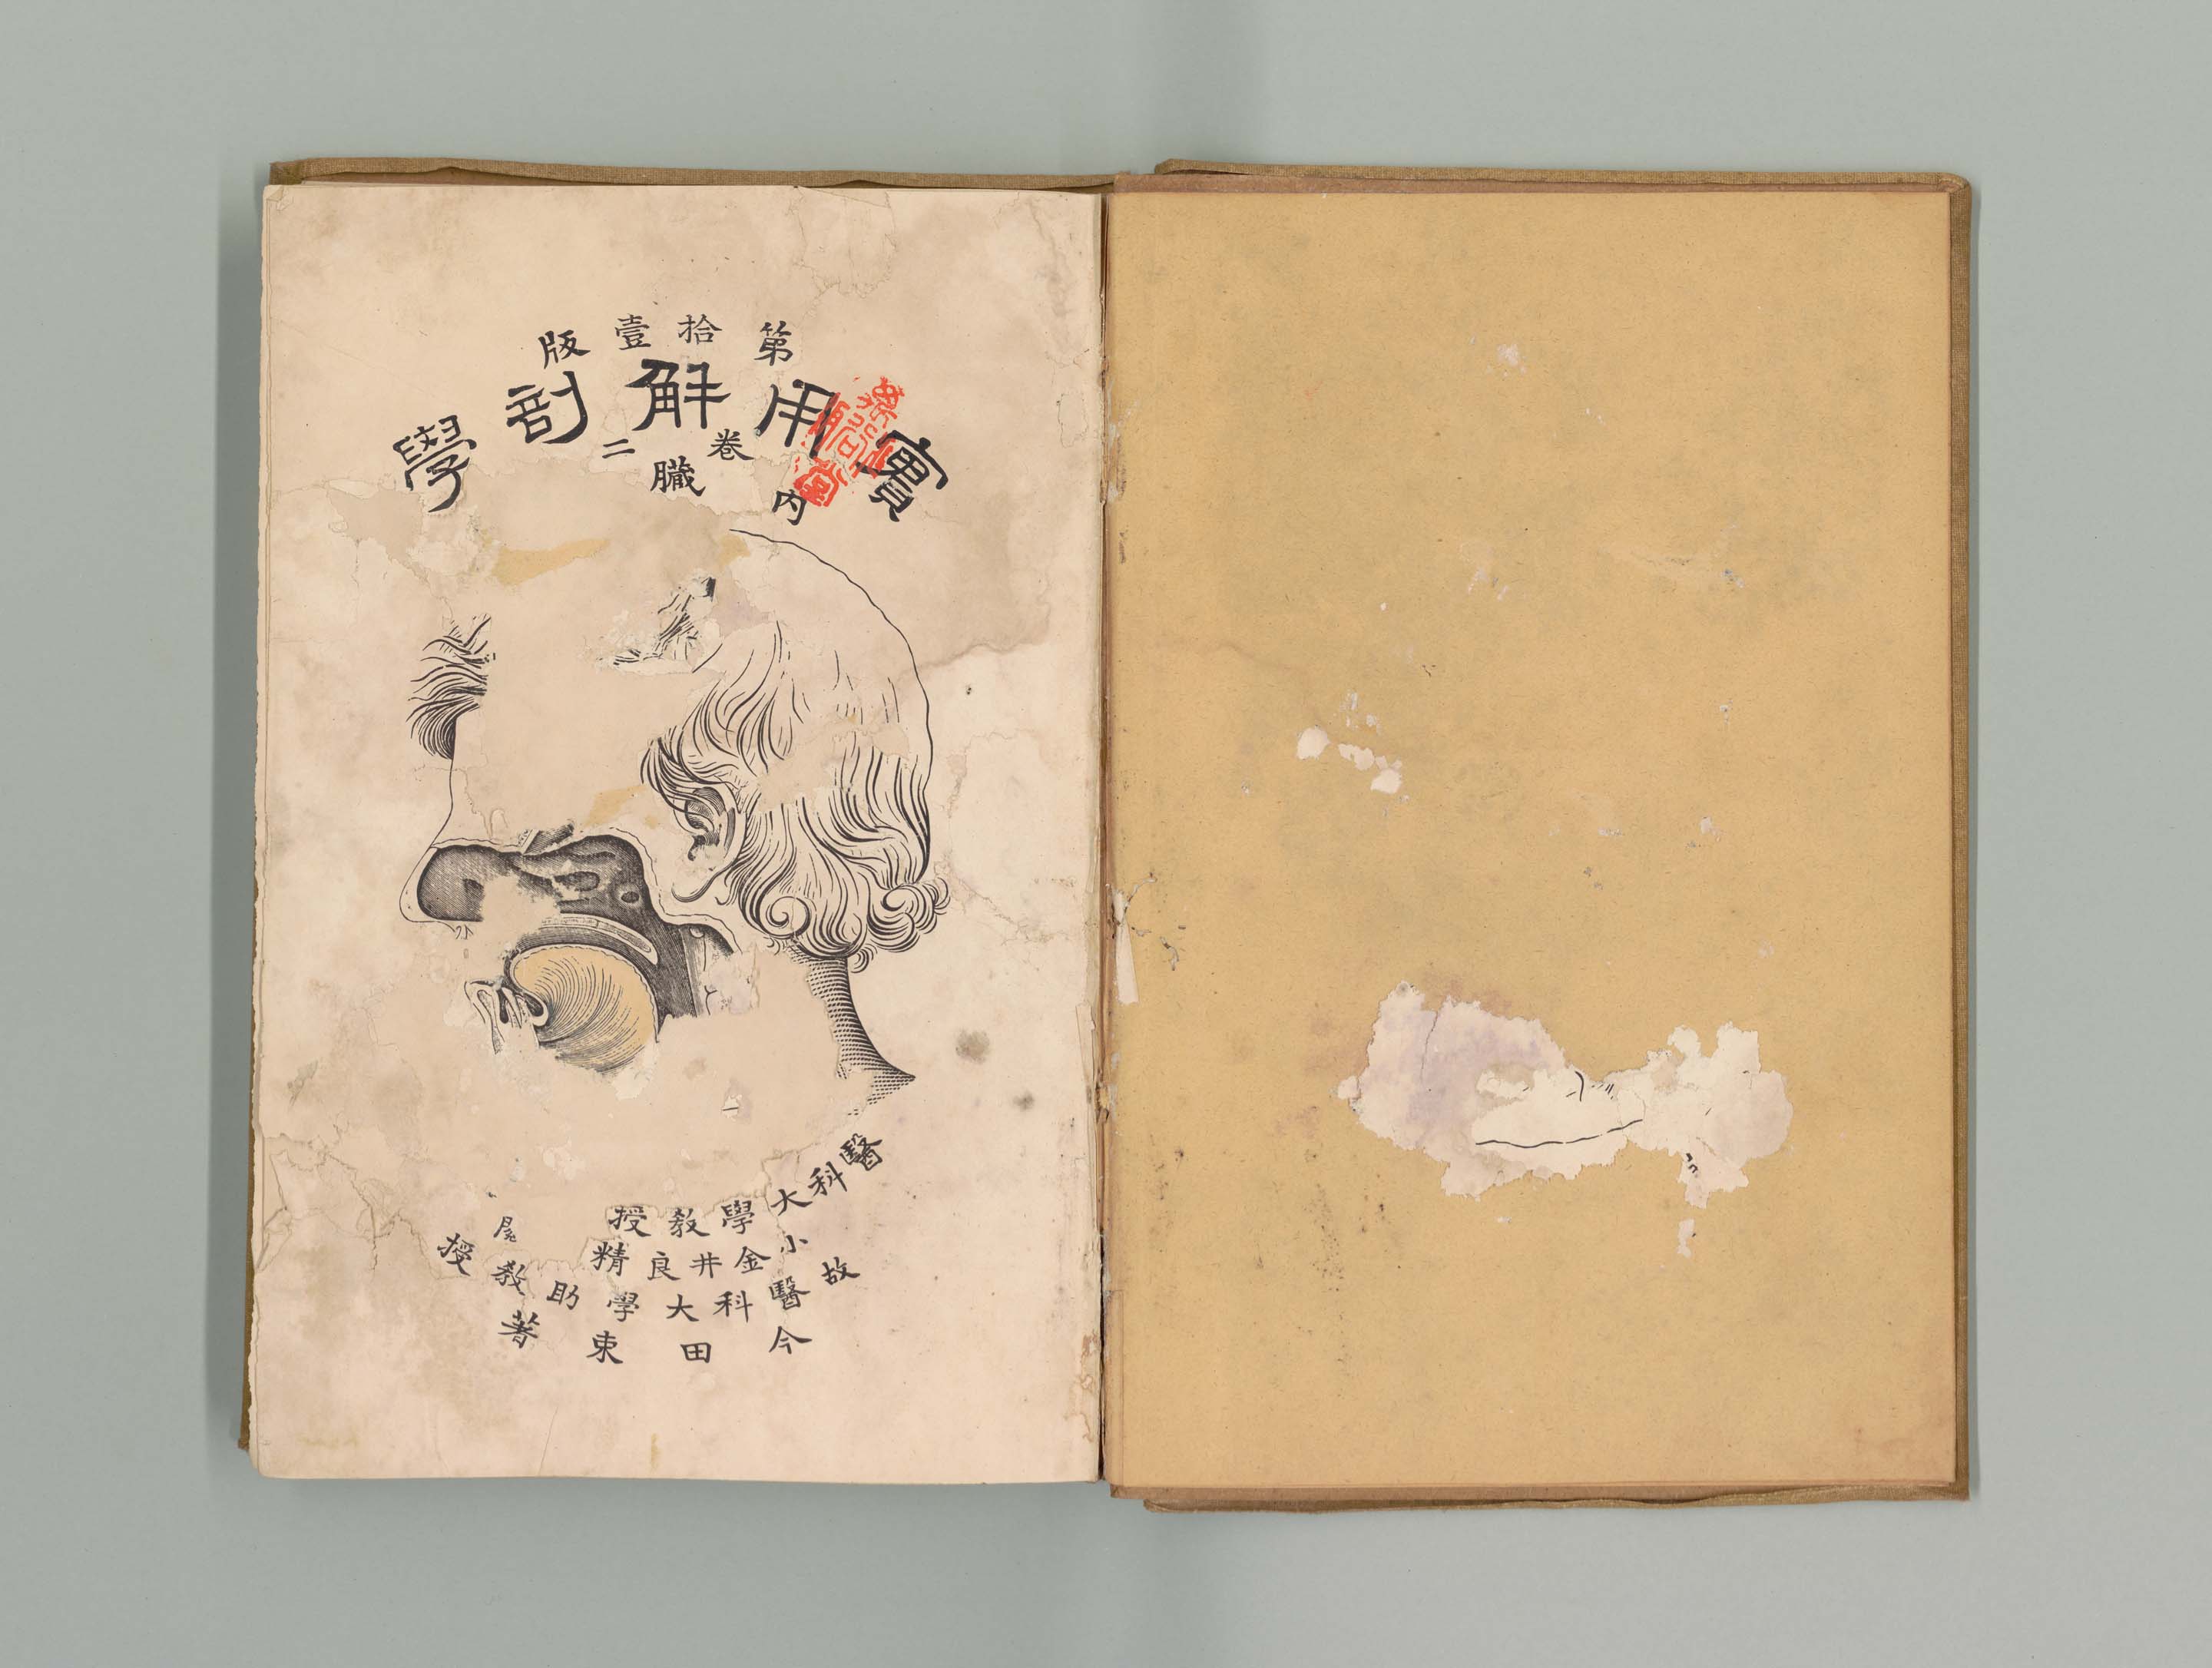 第拾壹版
實用解剖學
卷二
内臟
醫科大學敎授
小金井良精
故醫科大學助敎授
今田束著